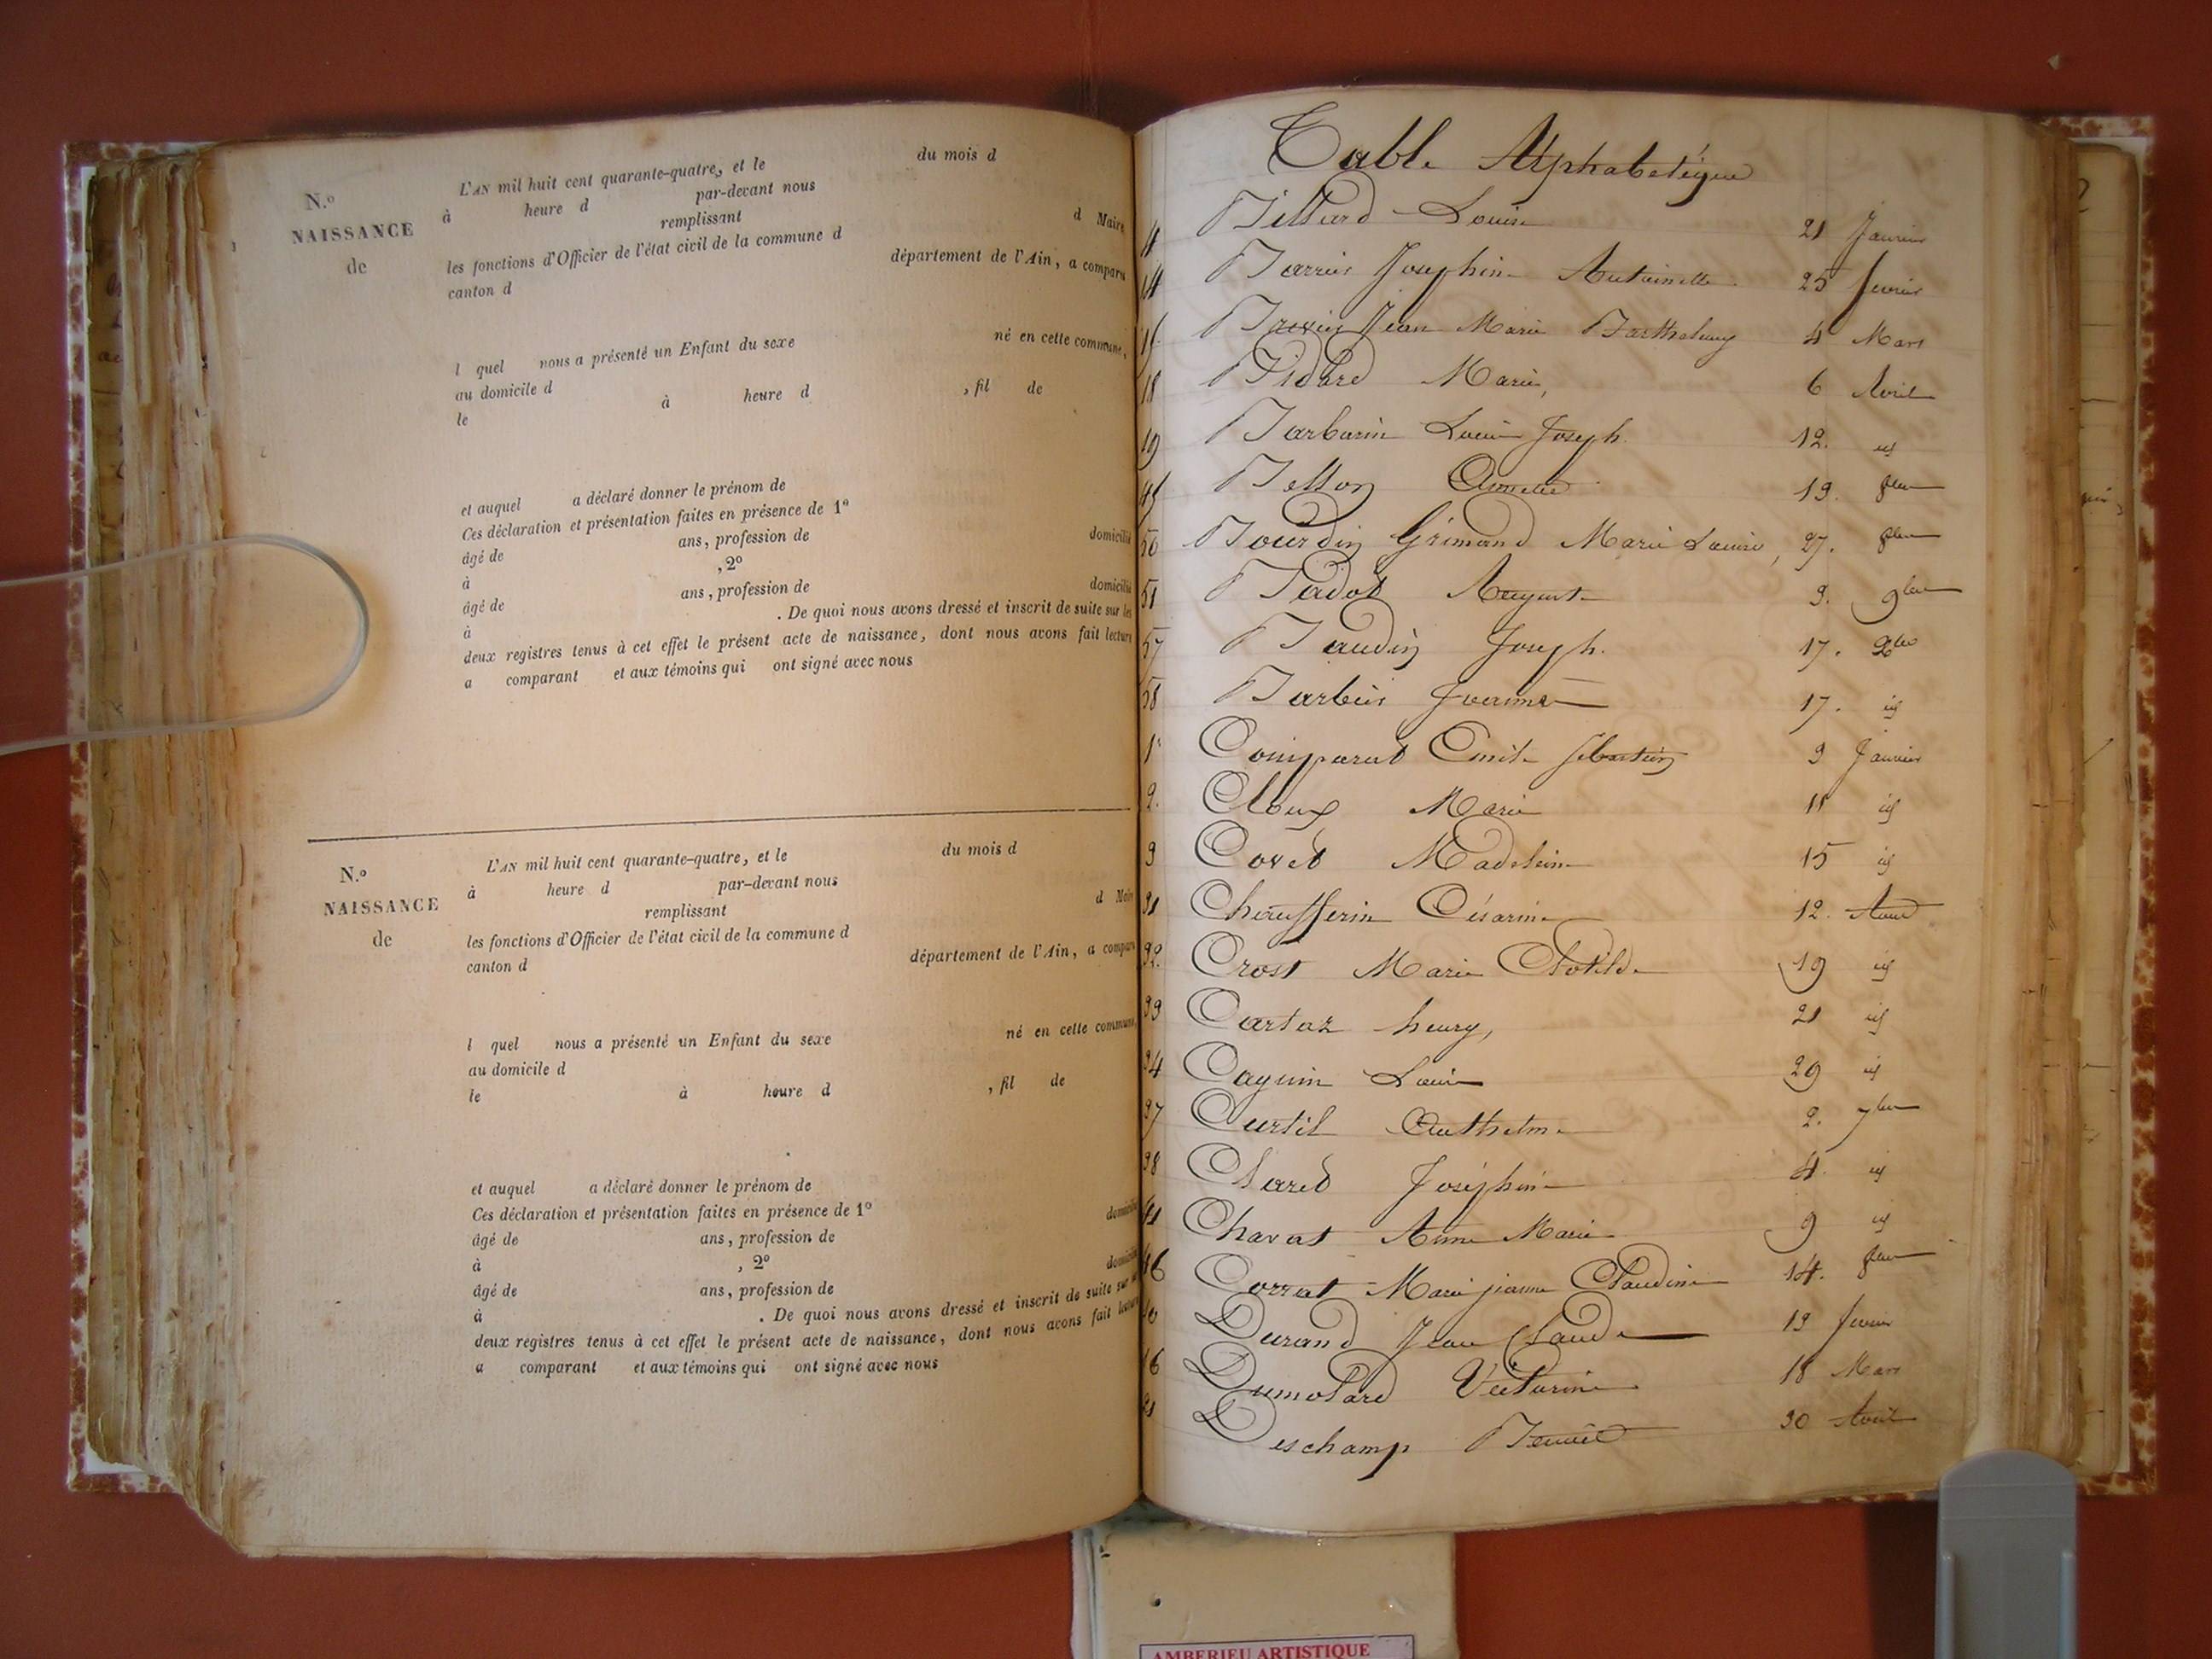 N.o
NAISSANCE
de
L'AN mil huit cent quarante-quatre, et le du mois d
à heure d par-devant nous
remplissant d Maire
les fonctions d'Officier de l'état civil de la commune d
canton d département de l'Ain, a comparu
l quel nous a présenté un Enfant du sexe né en cette commune,
au domicile d
le à heure d , fil de
et auquel a déclaré donner le prénom de
Ces déclaration et présentation faites en présence de 1º
âgé de ans, profession de domicilié
à , 2º
âgé de ans, profession de domicilié
à . De quoi nous avons dressé et inscrit de suite sur les
deux registres tenus à cet effet le présent acte de naissance, dont nous avons fait lecture
a comparant et aux témoins qui ont signé avec nous
N.o
NAISSANCE
de
L'AN mil huit cent quarante-quatre, et le du mois d
à heure d par-devant nous
remplissant d Maire
les fonctions d'Officier de l'état civil de la commune d
canton d département de l'Ain, a comparu
l quel nous a présenté un Enfant du sexe né en cette commune,
au domicile d
le à heure d , fil de
et auquel a déclaré donner le prénom de
Ces déclaration et présentation faites en présence de 1º
âgé de ans, profession de domicilié
à , 2º
âgé de ans, profession de domicilié
à . De quoi nous avons dressé et inscrit de suite sur les
deux registres tenus à cet effet le présent acte de naissance, dont nous avons fait lecture
a comparant et aux témoins qui ont signé avec nous
Table Alphabetique
4 Billiard Louise 21 Janvier
14 Barrier Josephine Antoinette 25 fevrier
15 Jean Marie Barthelemy 4 Mars
18 Bidard Marie, 6 Avril
19 Barbarin Louis Joseph 12. id
45 Belloz 13. 8bre
50 Bourdin Grimand Marie Louise, 27. 8bre
51 Badot August 3. 9bre
57 Baudin Joseph. 17. Xbre
58 Barbier 17. id
1 Comparat Emile Sebastien 3 Janvier
2. Cloux Marie 11 id
3 Covet Madeleine 15 id
31 Chaufferin Césarine 12. Aout
32. Crost Marie Clotilde 19 id
33 Cartaz henry, 21 id
34 Caguin Louis 29 id
37 Curtil Anthelme 2. 7bre
38 Claret Joséphine 4. id
41 Charat Anne Marie 9 id
46 Corrat Marie jeanne Claudine 14. 8bre
10 Durand Jean Claude 13 fevrier
16 Dumolard Victorine 18 Mars
21 Deschamp Benoit 30 Avril
AMBERIEU ARTISTIQUE